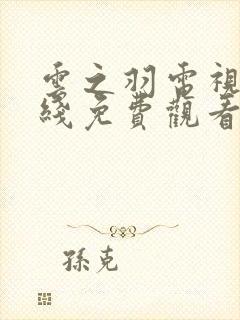 雲之羽電視
綫免費觀看
孫克